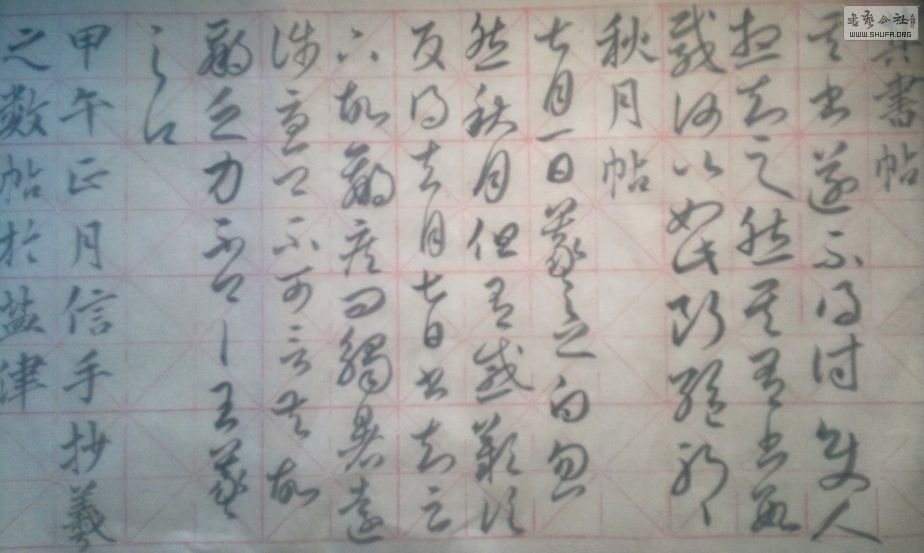 書藝公社
WWW.SHUFA.ORG
其書帖
其書遂不得付使人
想知之然其有書
載何以如此斷絕
秋月帖
七月一日羲之白忽
然秋月但有感歎信
反得去月七日書知足
下故羸疾問觸暑遠
涉憂卿不可言吾故
羸乏力不具王羲
之白
甲午正月信手抄羲
之數帖於盐津